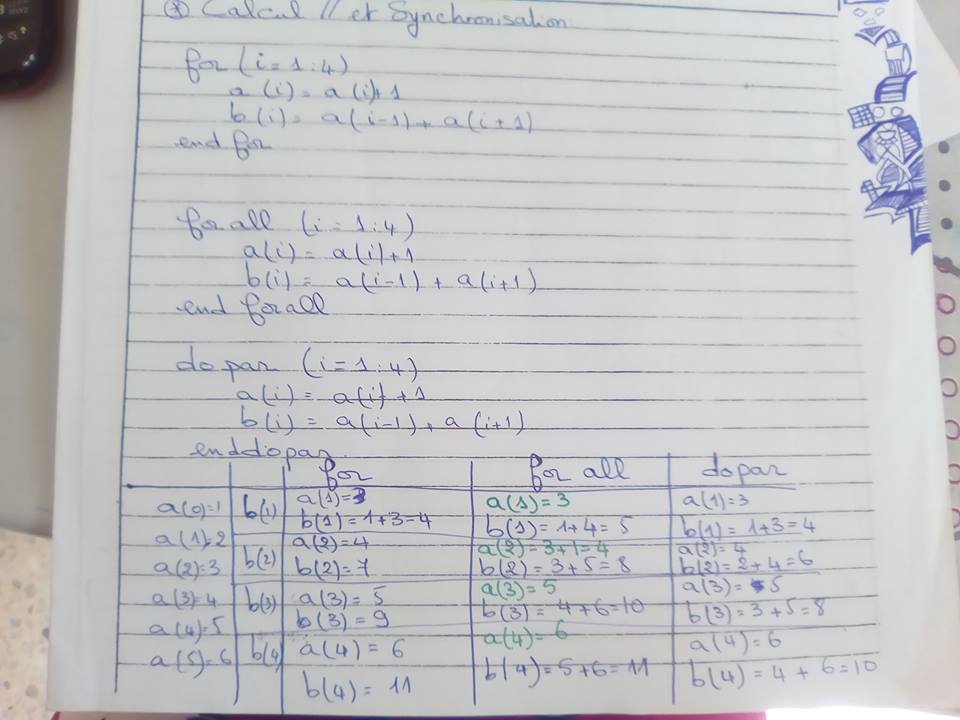 ⊛ Calcul // et Synchronisation
for (i=1:4)
a(i)= a(i)+1
b(i)= a(i-1)+ a(i+1)
end for
for all (i=1:4)
a(i)= a(i)+1
b(i)= a(i-1) + a(i+1)
end for all
do par (i=1:4)
a(i)= a(i)+1
b(i)= a(i-1), a(i+1)
enddopar
for for all dopar
a(0)=1 b(1) a(1)=3 a(1)=3 a(1)=3
b(1)=1+3=4 b(1)=1+4=5 b(1)=1+3=4
a(1)=2 a(2)=4 a(2)=3+1=4 a(2)=4
a(2)=3 b(2) b(2)=7 b(2)=3+5=8 b(2)=2+4=6
a(3)=4 b(3) a(3)=5 a(3)=5 a(3)=5
b(3)=9 b(3)=4+6=10 b(3)=3+5=8
a(4)=5 a(4)=6 a(4)=6 a(4)=6
a(5)=6 b(4) b(4)=11 b(4)=5+6=11 b(4)=4+6=10